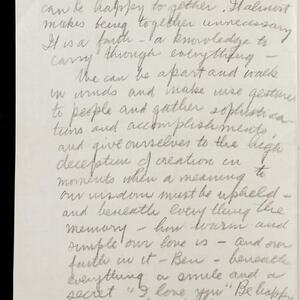 can be happy to gether. It almost
makes being together unnecessary
It is a faith - a knowledge to
carry through everything -
We can be apart and walk
in winds and make use gestures
to people and gather sophistica-
tions and accomplishments,
and give ourselves to the high
deception of creation in
moments when a meaning to
our wisdom must be upheld -
and beneath everything the
memory - how warm and
simple our love is - and our
faith in it - Ben - beneath
everything a smile and a
secret "I love you" Be happy